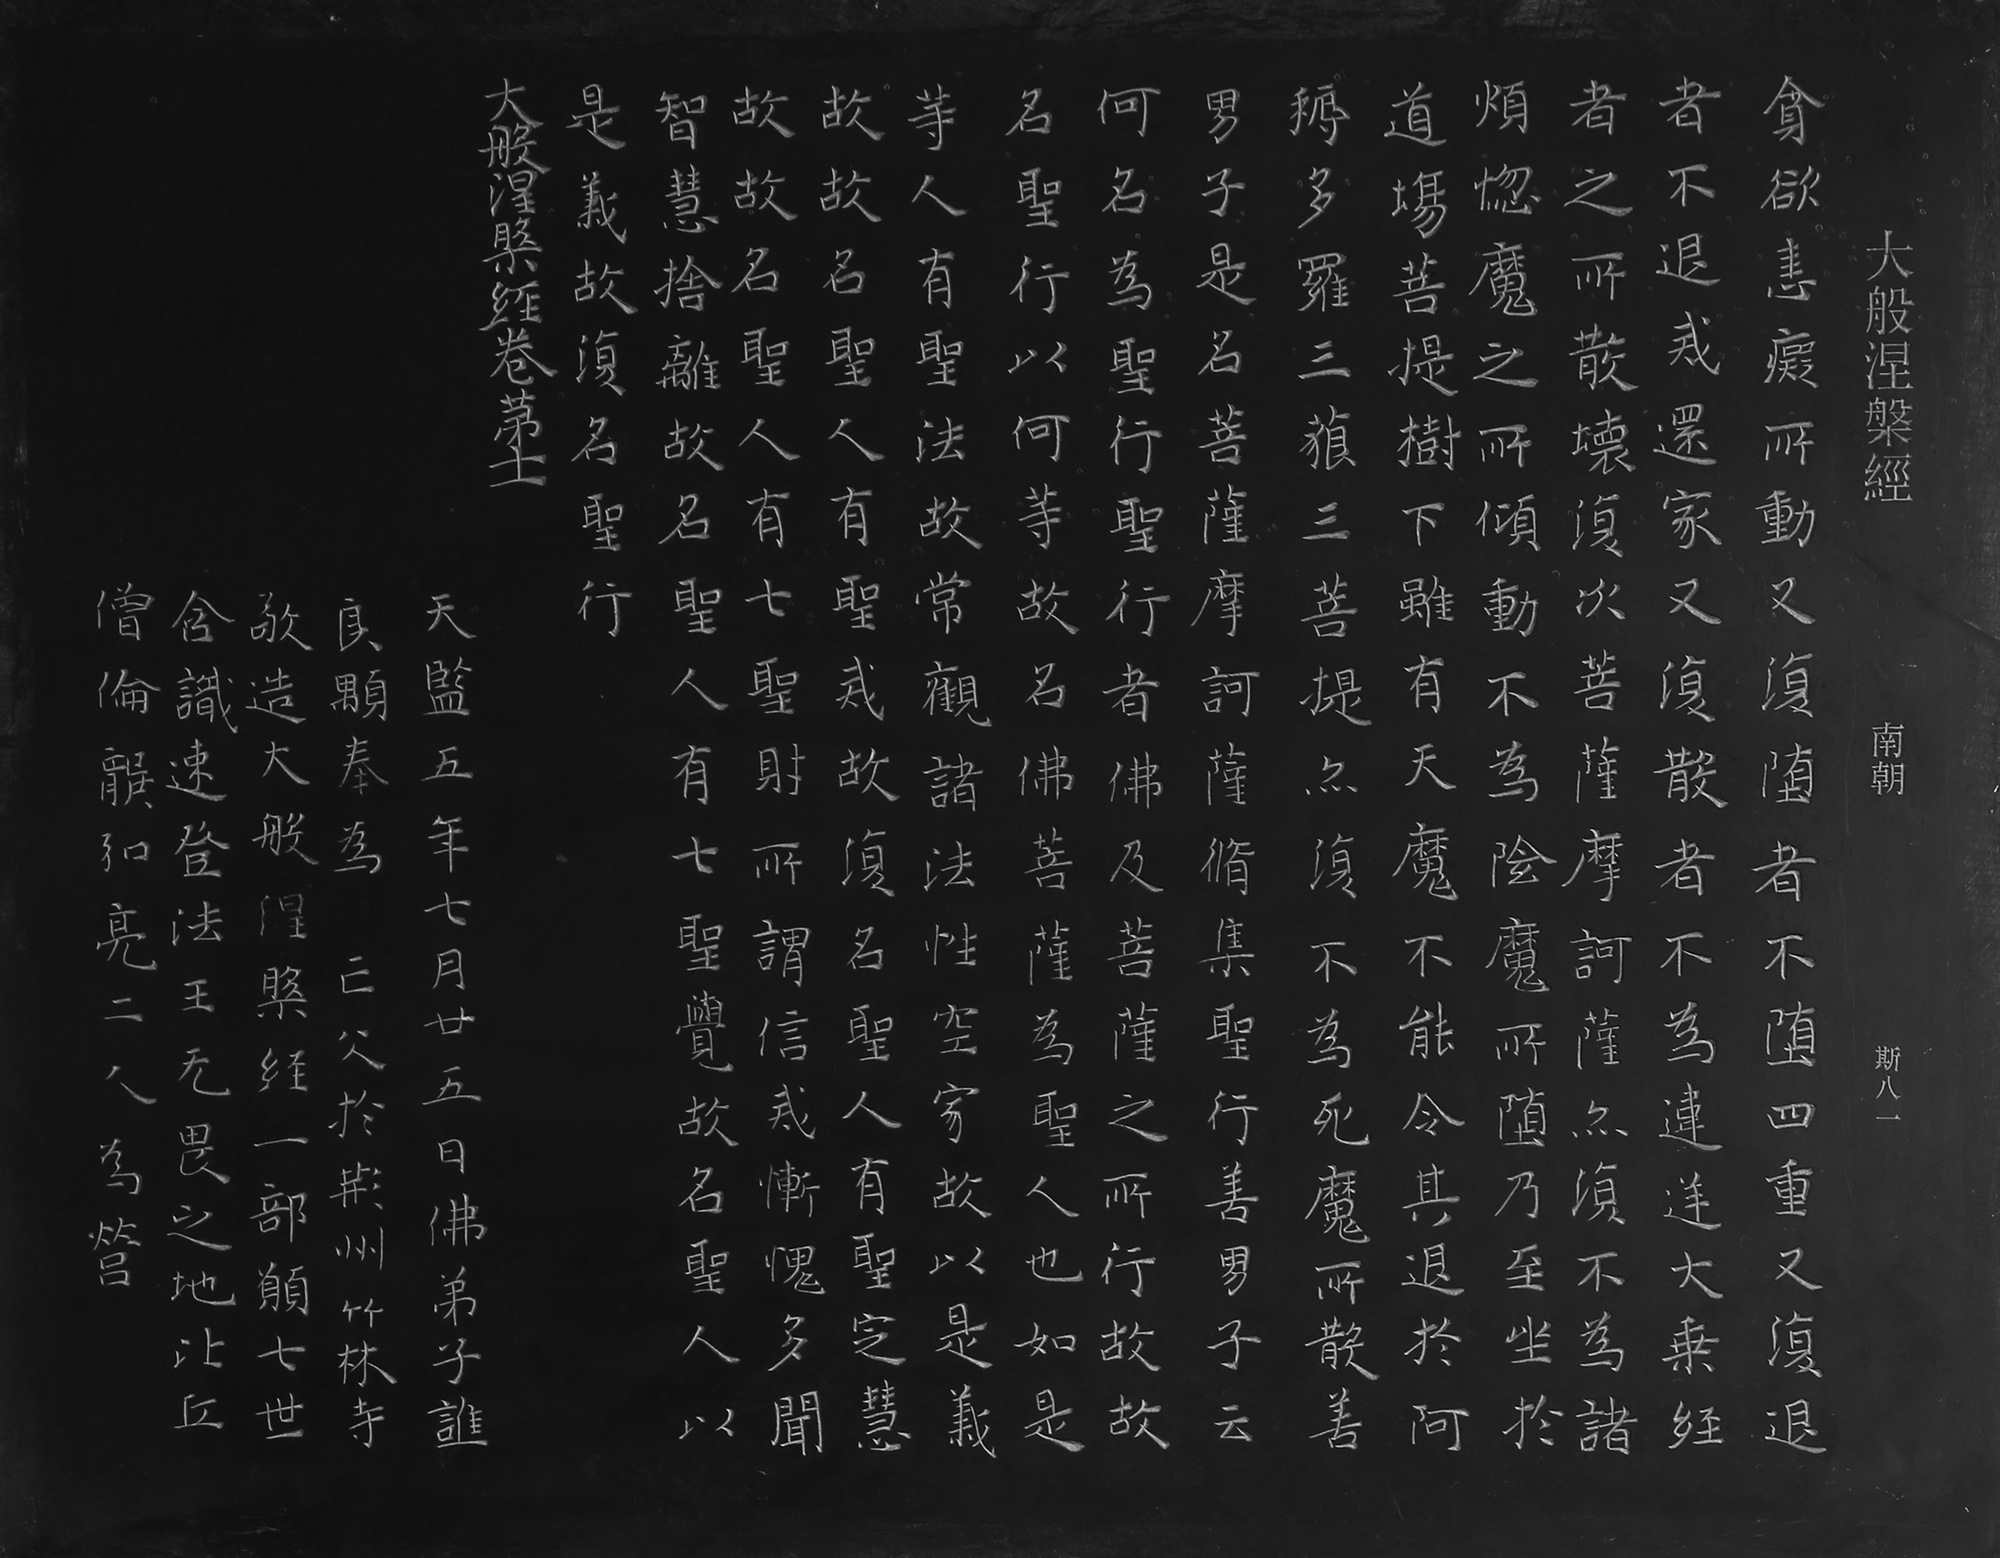 大般涅槃經 南朝 斯八一
貪欲恚癡所動又復堕者不堕四重又復退
者不退戒還家又復散者不為違逆大乗経
者之所散壞復次菩薩摩訶薩亦復不為諸
煩惚魔之所傾動不為陰魔所堕乃至坐於
道場菩提樹下雖有天魔不能令其退於阿
耨多羅三藐三菩提亦復不為死魔所散善
男子是名菩薩摩訶薩脩集聖行善男子云
何名為聖行聖行者佛及菩薩之所行故故
名聖行以何等故名佛菩薩為聖人也如是
等人有聖法故常觀諸法性空寂故以是義
故故名聖人有聖戒故復名聖人有聖定慧
故故名聖人有七聖財所謂信戒慚愧多聞
智慧捨離故名聖人有七聖覺故名聖人以
是義故復名聖行
大般涅槃経卷第十一
天監五年七月廿五日佛弟子譙
良顒奉為 亡父於荊州竹林寺
敬造大般涅槃経一部願七世
含識速登法王无畏之地比丘
僧倫龔弘亮二人為營